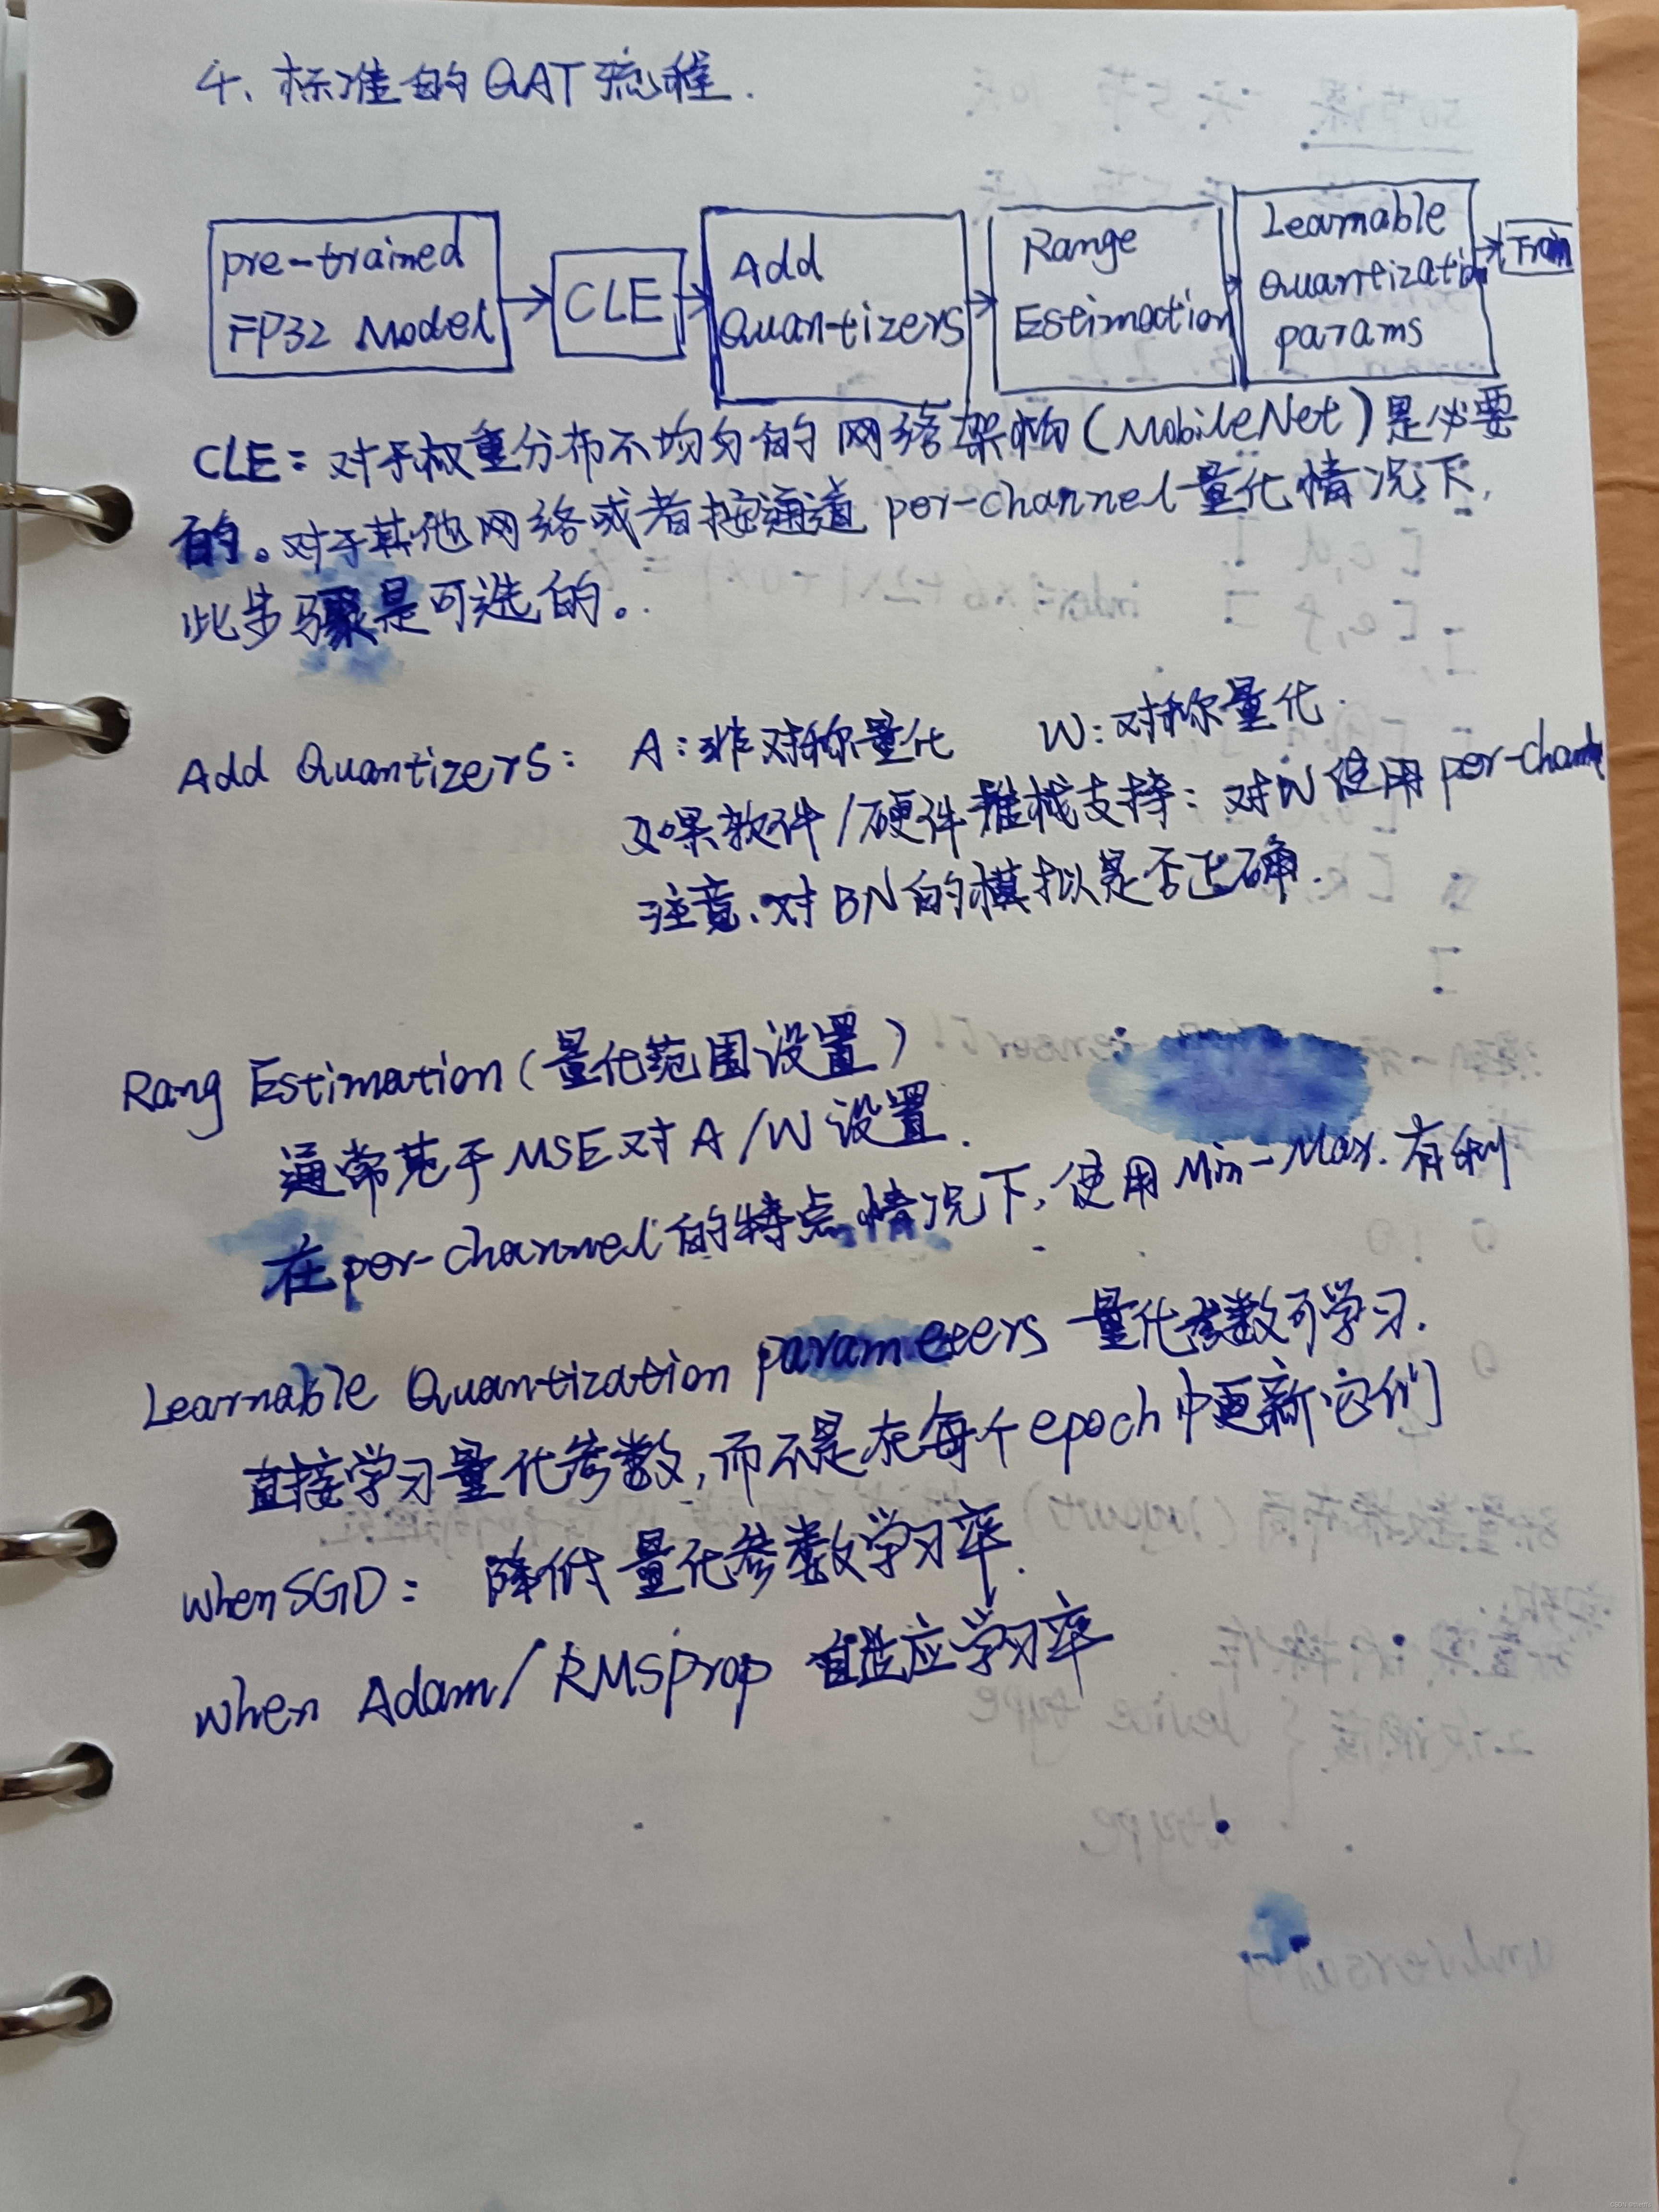 4、标准的QAT流程.
pre-trained
FP32 Model
CLE
Add
Quantizers
Range
Estimation
Learnable
Quantizatio
params
Train
CLE: 对于权重分布不均匀的网络架构(MobileNet)是必要
的。对于其他网络或者按通道 per-channel 量化情况下,
此步骤是可选的。
Add Quantizers: A:非对称量化 W:对称量化.
如果软件/硬件堆栈支持: 对W使用per-channel
注意、对BN的模拟是否正确.
Rang Estimation(量化范围设置)
通常基于MSE对A/W设置.
在per-channel的特点情况下,使用Min-Max.有利
Learnable Quantization parameters 量化参数可学习.
直接学习量化参数,而不是在每个epoch中更新它们
when SGD: 降低量化参数学习率.
when Adam/RMSprop 自适应学习率